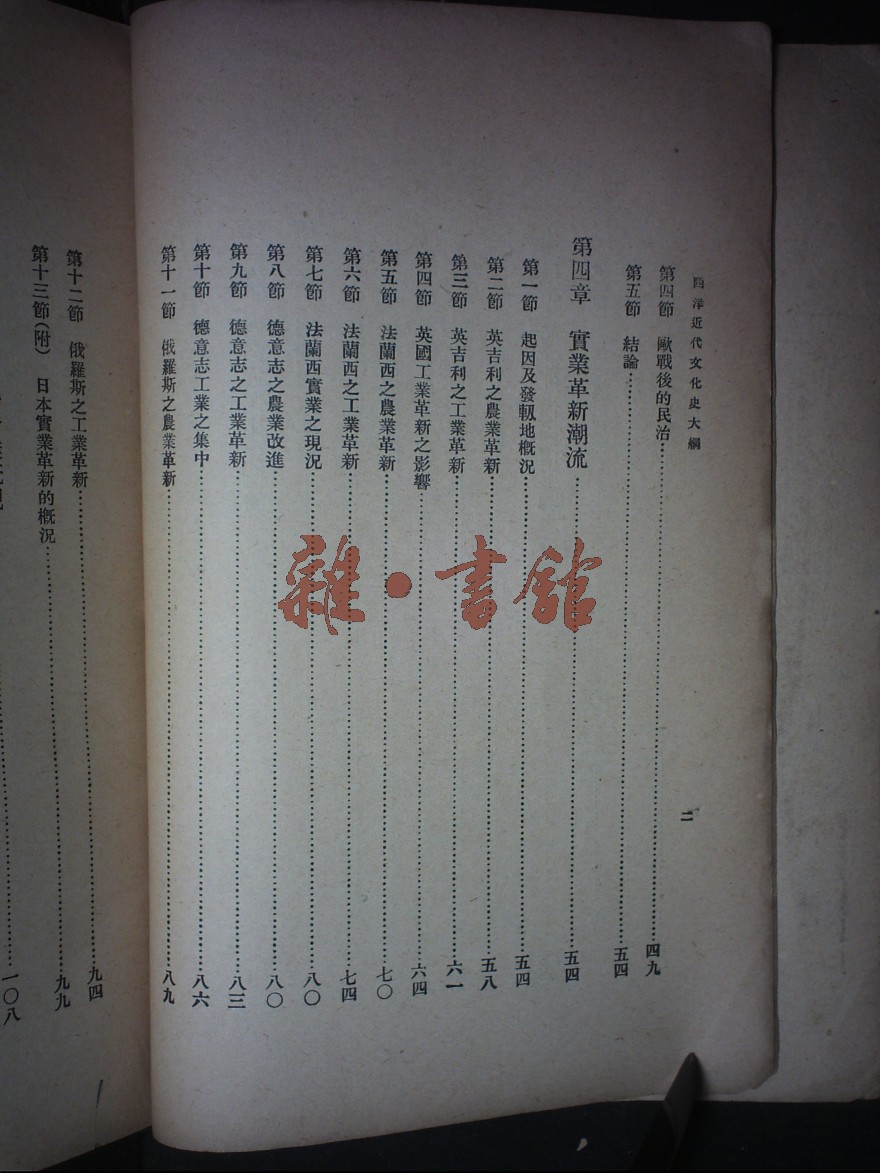 西洋近代文化史大綱
二
第四節 歐戰後的民治……四九
第五節 結論……五四
第四章 實業革新潮流……五四
第一節 起因及發軔地概況……五四
第二節 英吉利之農業革新……五八
第三節 英吉利之工業革新……六一
第四節 英國工業革新之影響……六四
第五節 法蘭西之農業革新……七〇
第六節 法蘭西之工業革新……七四
第七節 法蘭西實業之現況……八〇
第八節 德意志之農業改進……八〇
第九節 德意志之工業革新……八三
第十節 德意志工業之集中……八六
第十一節 俄羅斯之農業革新……八九
第十二節 俄羅斯之工業革新……九四
第十三節(附) 日本實業革新的概況……九九
……一〇八
雜·書館